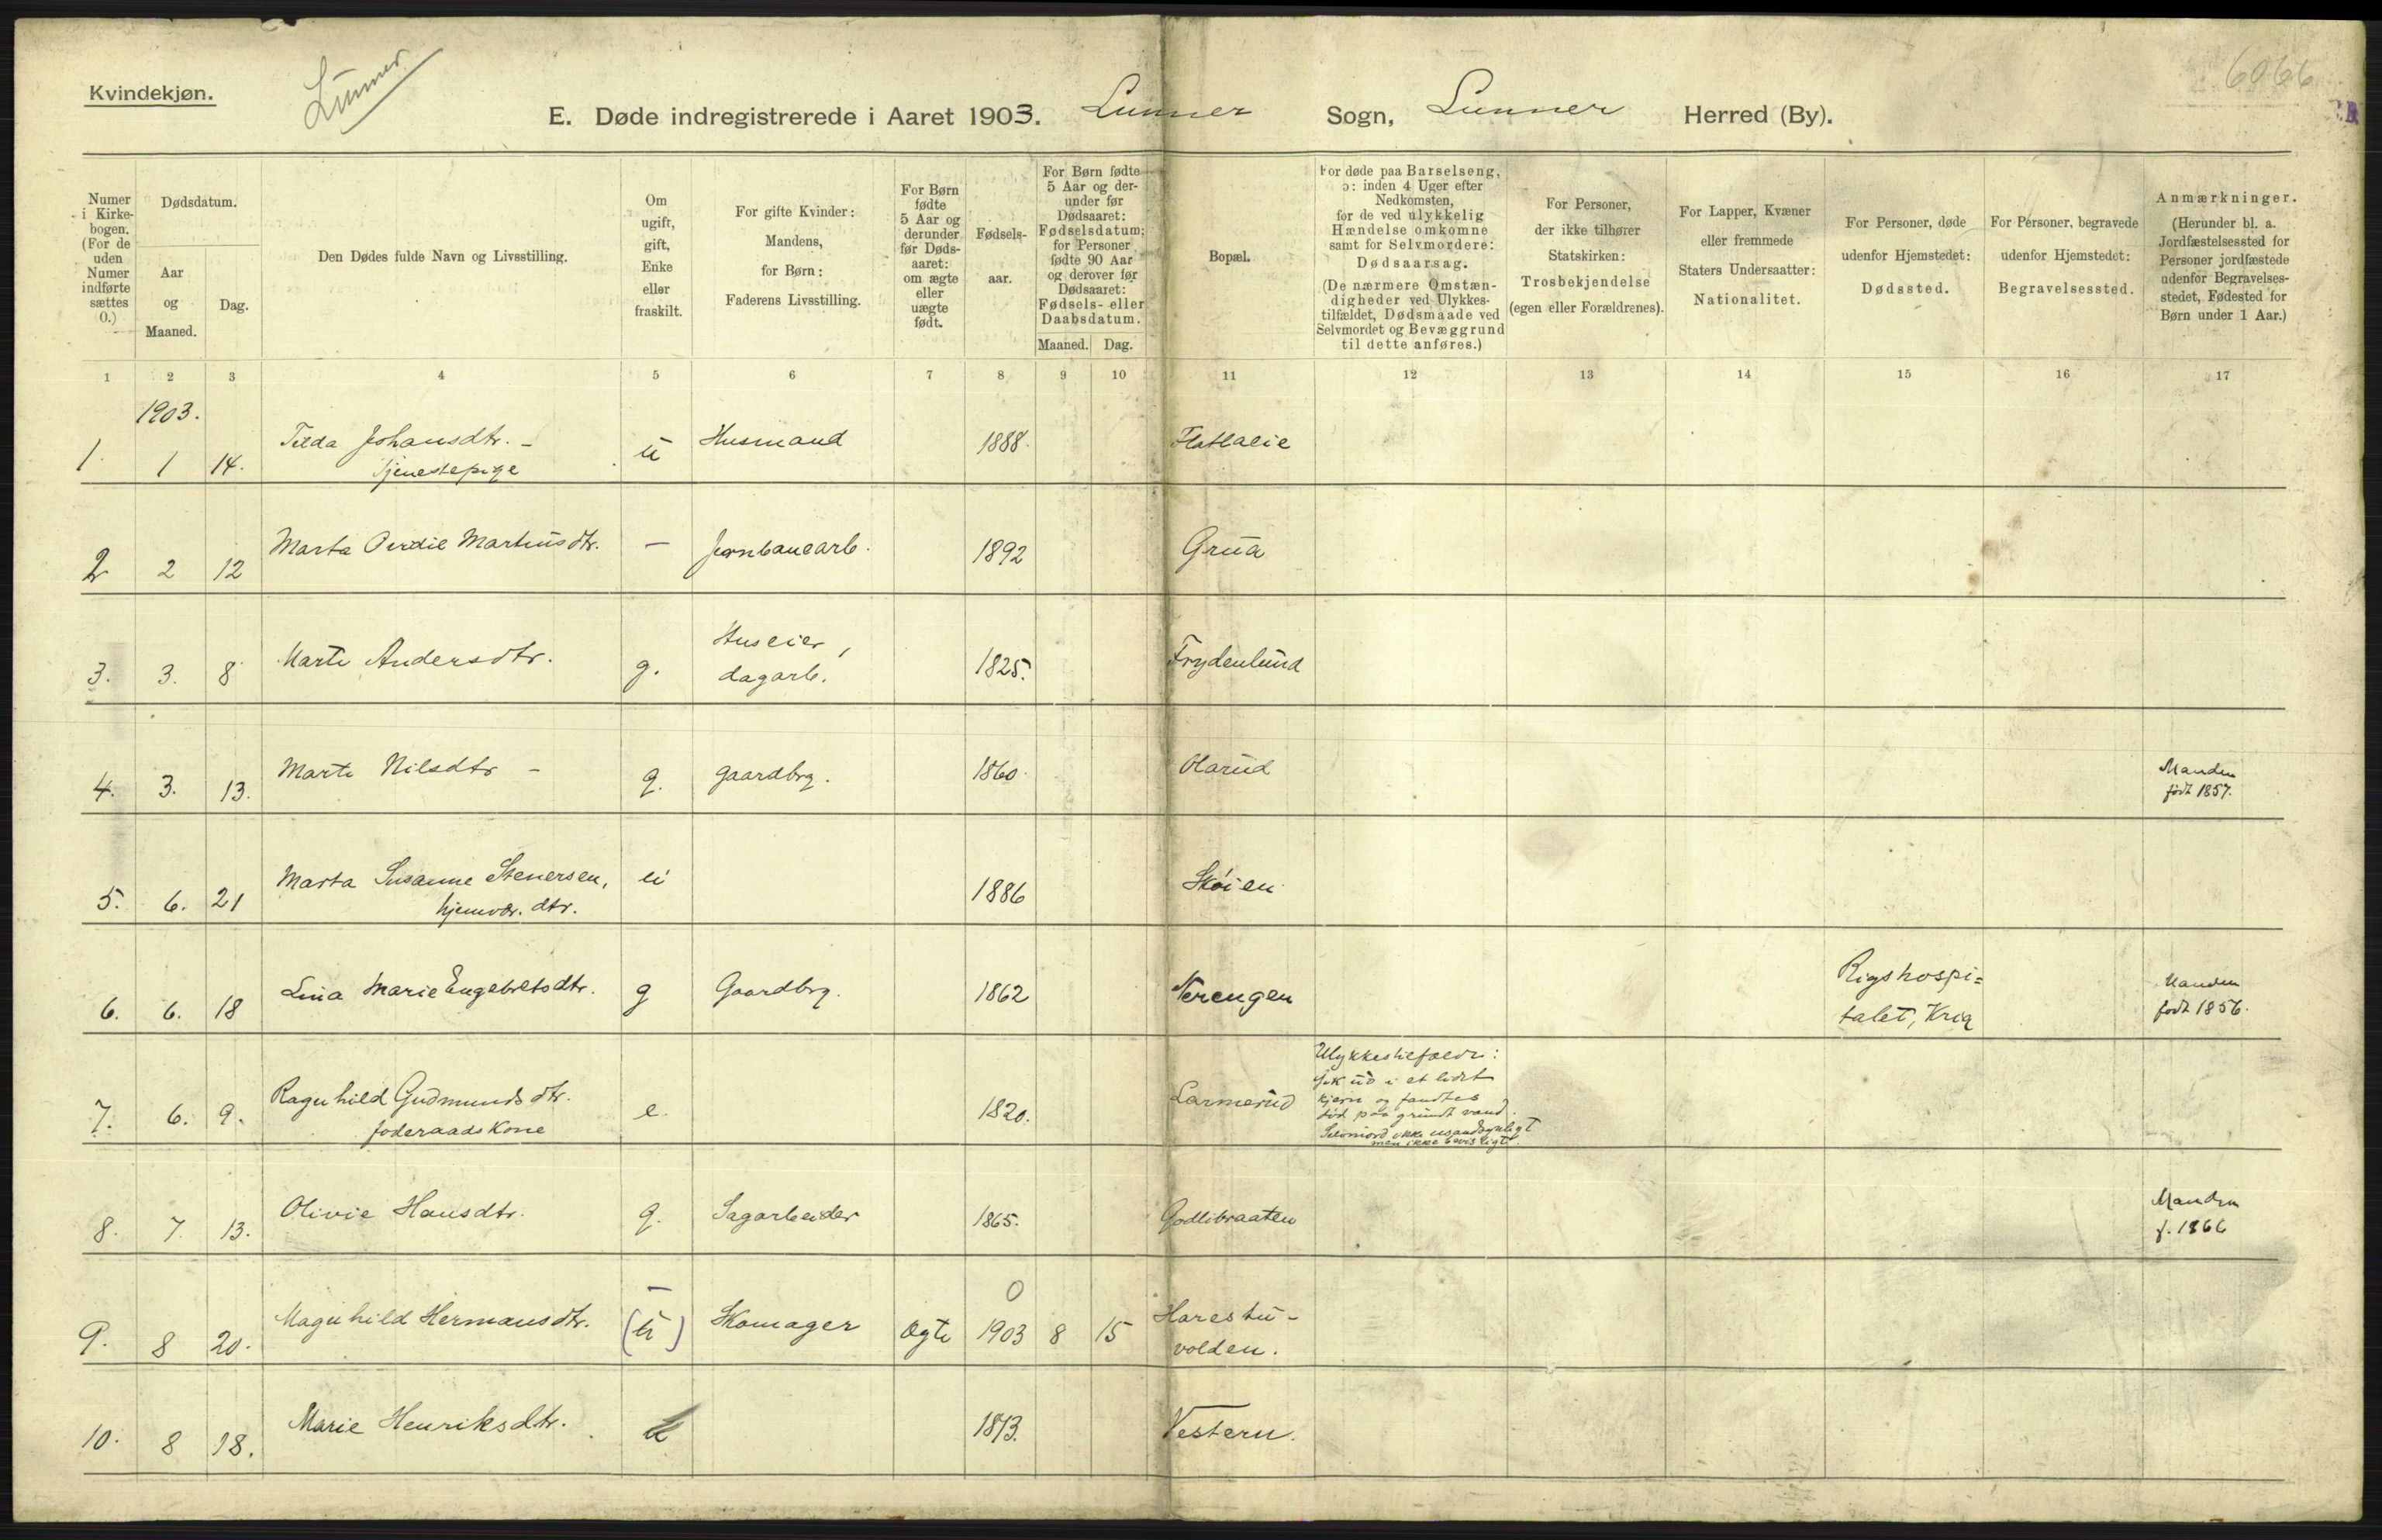 Kvindekjøn.
Lunner
6066
E. Døde indregistrerede i Aaret 1903. Lunner Sogn, Lunner Herred (By).
Numer
i Kirke-
bogen.
(For de
uden
Numer
indførte
sættes
0.)
Dødsdatum.
Aar
og
Maaned.
Dag.
Den Dødes fulde Navn og Livsstilling.
Om
ugift,
gift,
Enke
eller
fraskilt.
For gifte Kvinder:
Mandens,
for Børn:
Faderens Livsstilling.
For Børn
fødte
5 Aar og
derunder
før Døds-
aaret:
om ægte
eller
uægte
født.
Fødsels-
aar.
For Børn fødte
5 Aar og der-
under før
Dødsaaret:
Fødselsdatum;
for Personer
fødte 90 Aar
og derover før
Dødsaaret:
Fødsels- eller
Daabsdatum.
Maaned. Dag.
Bopæl.
For døde paa Barselseng,
ɔ: inden 4 Uger efter
Nedkomsten,
for de ved ulykkelig
Hændelse omkomne
samt for Selvmordere:
Dødsaarsag.
(De nærmere Omstæn-
digheder ved Ulykkes-
tilfældet, Dødsmaade ved
Selvmordet og Bevæggrund
til dette anføres.)
For Personer,
der ikke tilhører
Statskirken:
Trosbekjendelse
(egen eller Forældrenes).
For Lapper, Kvæner
eller fremmede
Staters Undersaatter:
Nationalitet.
For Personer, døde
udenfor Hjemstedet:
Dødssted.
For Personer, begravede
udenfor Hjemstedet:
Begravelsessted.
Anmærkninger.
(Herunder bl. a.
Jordfæstelsessted for
Personer jordfæstede
udenfor Begravelses-
stedet, Fødested for
Børn under 1 Aar.)
1 2 3 4 5 6 7 8 9 10 11 12 13 14 15 16 17
1903.
1. 1 14. Tilda Johansdtr. - u Husmand 1888. Flatlaeie
Tjenestepige
2 2 12 Marta Perdie Martinsdtr. — Jernbanearb. 1892 Grua
3. 3. 8 Marte Andersdtr. g. Huseier, 1825. Frydenlund
dagarb.
4. 3. 13. Marte Nilsdtr - g. gaardbrg. 1860. Olarud Manden
født 1857.
5. 6. 21 Marta Susanne Stenersen, u 1886 Skøien
hjemvær. dtr.
6. 6. 18 Lina Marie Engebretsdtr. g Gaardbrg. 1862 Nerengen Rigshospi= Manden
talet, Kria født 1856.
7. 6. 9. Ragnhild Gudmundsdtr. e. 1820. Larmerud
føderaadskone
Ulykkestilfælde:
Gik ud i et lidet
kjern og fandtes
død paa grundt vand.
Selvmord ikke usandsynligt
men ikke bevisligt.
8. 7. 13. Olivie Hansdtr. g. Sagarbeider 1865. Godlibraaten Manden
f. 1866
0
9. 8 20. Magnhild Hermansdtr. — (u) Skomager Ægte 1903 8 15 Harestu-
volden.
10. 8 18. Marie Henriksdtr. u 1873. Vestern.